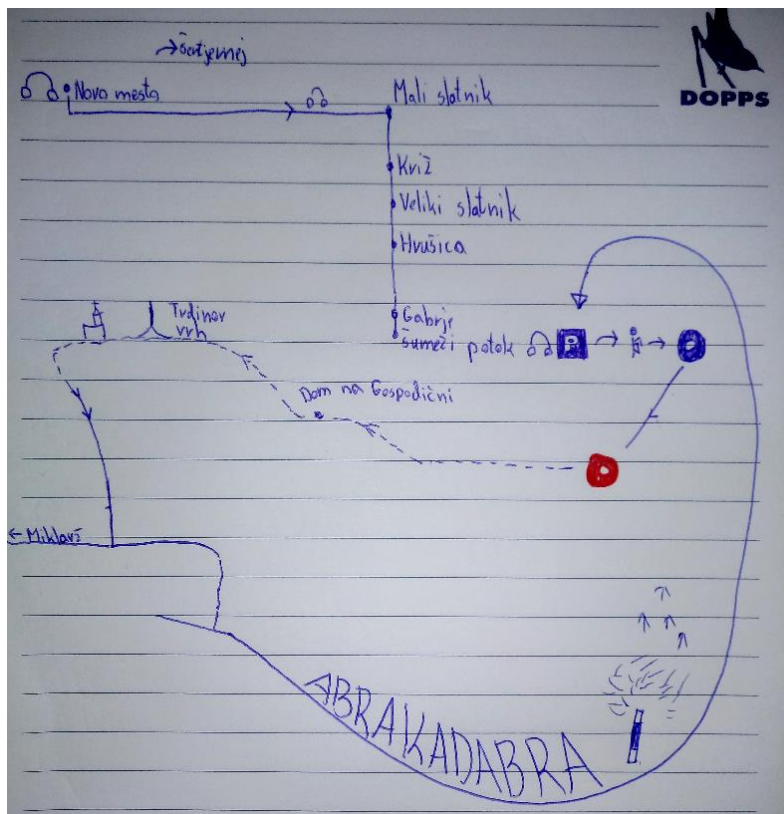 → Šentjernej
DOPPS
Novo mesto
Mali slatnik
Križ
Veliki slatnik
Hrušica
Gabrje
Šumeči potok
P
Trdinov
vrh
Dom na Gospodični
← Miklavž
ABRAKADABRA